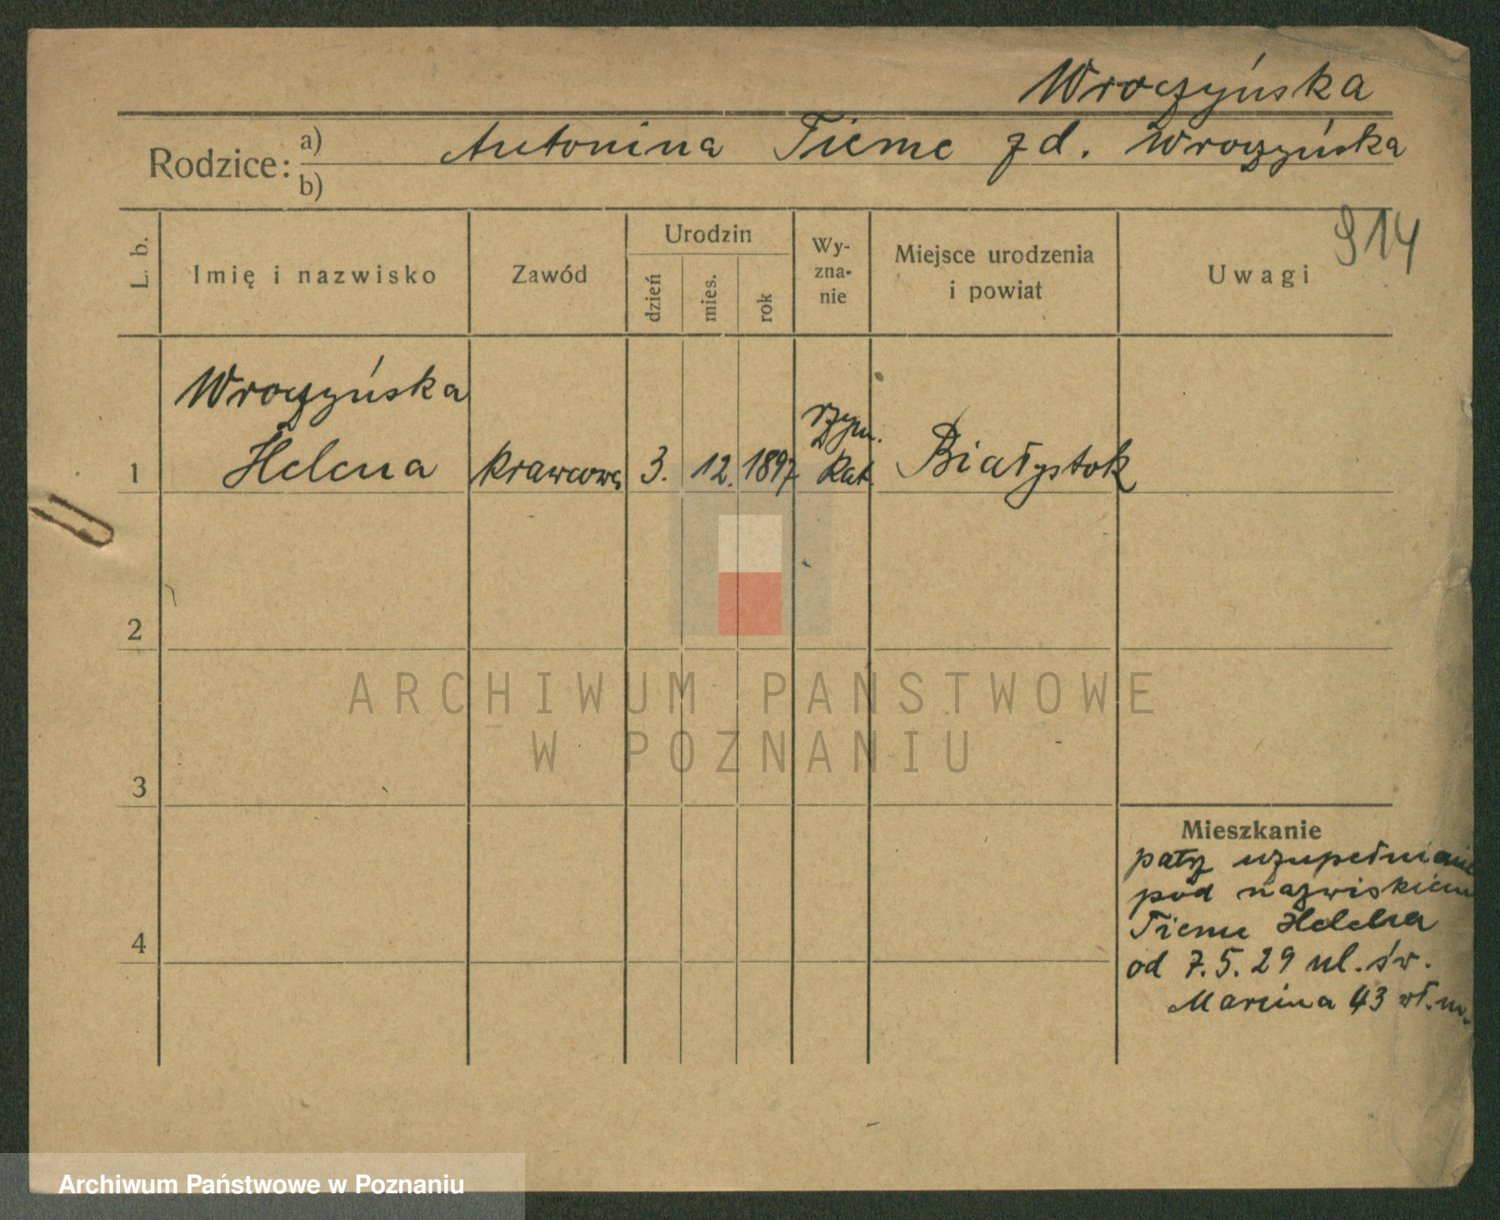 Wroczyńska
Rodzice: a) Antonina Tieme zd. Wroczyńska
b)
914
L. b.
Imię i nazwisko
Zawód
Urodzin
dzień
mies.
rok
Wy-
zna-
nie
Miejsce urodzenia
i powiat
Uwagi
Wroczyńska
rzym.
1 Helena krawcowa 3. 12. 1897 kat. Białystok
2
ARCHIWUM PAŃSTWOWE
W POZNANIU
3
Mieszkanie
patrz uzupełnianie
pod nazwiskiem
Tieme Helena
4
od 7.5.29 ul. św.
Marcina 43 wł. m.
Archiwum Państwowe w Poznaniu